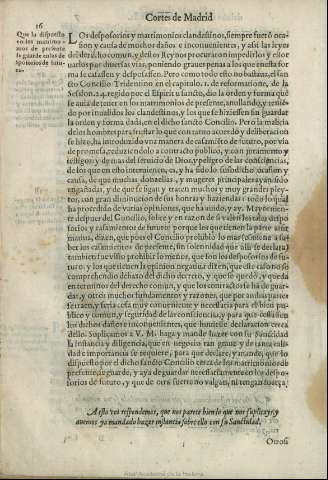 Cortes de Madrid
16
Que lo dispuesto
en los matrimonios
de presente
se guarde en los
desposorios de futuro.
LOs desposorios y matrimonios clandestinos, siempre fuerõ ocasion
y causa de muchos daños e inconuenientes, y assi las leyes
del derecho comun, y destos Reynos procuraron impedirlos y estoruarlos
por diuersas vias, poniendo graues penas a los que en esta forma
se casassen y desposassen. Pero como todo esto no bastasse, el santo
Concilio Tridentino en el capitulo. 1. de reformatione, de la
Session. 24. regido por el Espiritu sancto, dio la orden y forma que
se auia de tener en los matrimonios de presente, anullando, y teniendo
por inualidos los clandestinos, y los que se hiziessen sin guardar
la orden y forma dada, en el dicho sancto Concilio. Pero la malicia
de los hombres para frustar lo que con tanto acuerdo y deliberacion
se hizo, ha introduzido vna manera de casamiẽto de futuro, por via
de promesa, reduziendolo a contracto publico, y con juramento y
testigos, y demas del seruicio de Dios, y peligro de las consciencias,
de los que en ello interuienen, es, y ha sido lo susodicho ocasion y
causa, de que muchas donzellas, y mugeres principales ayan sido
engañadas, y de que se sigan y traten muchos y muy grandes pleytos,
con gran diminucion de sus honras y haziendas: todo lo qual
ha procedido de varias opiniones, que ha auido, y ay. Mayormente
despues del Concilio, sobre y en razon de si valen los tales desposorios
y casamientos de futuro: porque los que tienen la parte
dizen, que pues el Concilio prohibio
los casamientos de presente, sin solemnidad que alli se declara,
tambien fue visto prohibir lo menos, que son los desposorios de futuro,
y los que tienen la opinion negatiua dizen, que este caso no se
comprehendio debaxo del dicho decreto, y que se quedò, y queda
en terminos del derecho comun, y que los contractos se hã de guardar,
y otros muchos fundamentos y razones, que por ambas partes
se traen, y seria cosa muy conueniente y necessaria para el bien publico
y comun, y seguridad de las consciencias, y para que cessassen
los dichos daños e inconuenientes, que huuiesse declaracion cerca
dello. Suplicamos a V. M. haga y mande hazer con su Sanctidad
la instancia y diligencia, que en negocio tan graue y de tanta calidad
e importancia se requiere, para que declare, y mande, que lo
dispuesto por el dicho sancto Concilio cerca de los matrimonios de
presente se guarde, y aya de guardar necessariamente en los desposorios
de futuro, y que de otra suerte no valgan, ni tengan fuerça.
A esto vos respondemos, que nos parece bien lo que nos suplicays, y
auemos ya mandado hazer instancia sobre ello con su Sanctidad.
Otrosi
Real Academia de la Historia